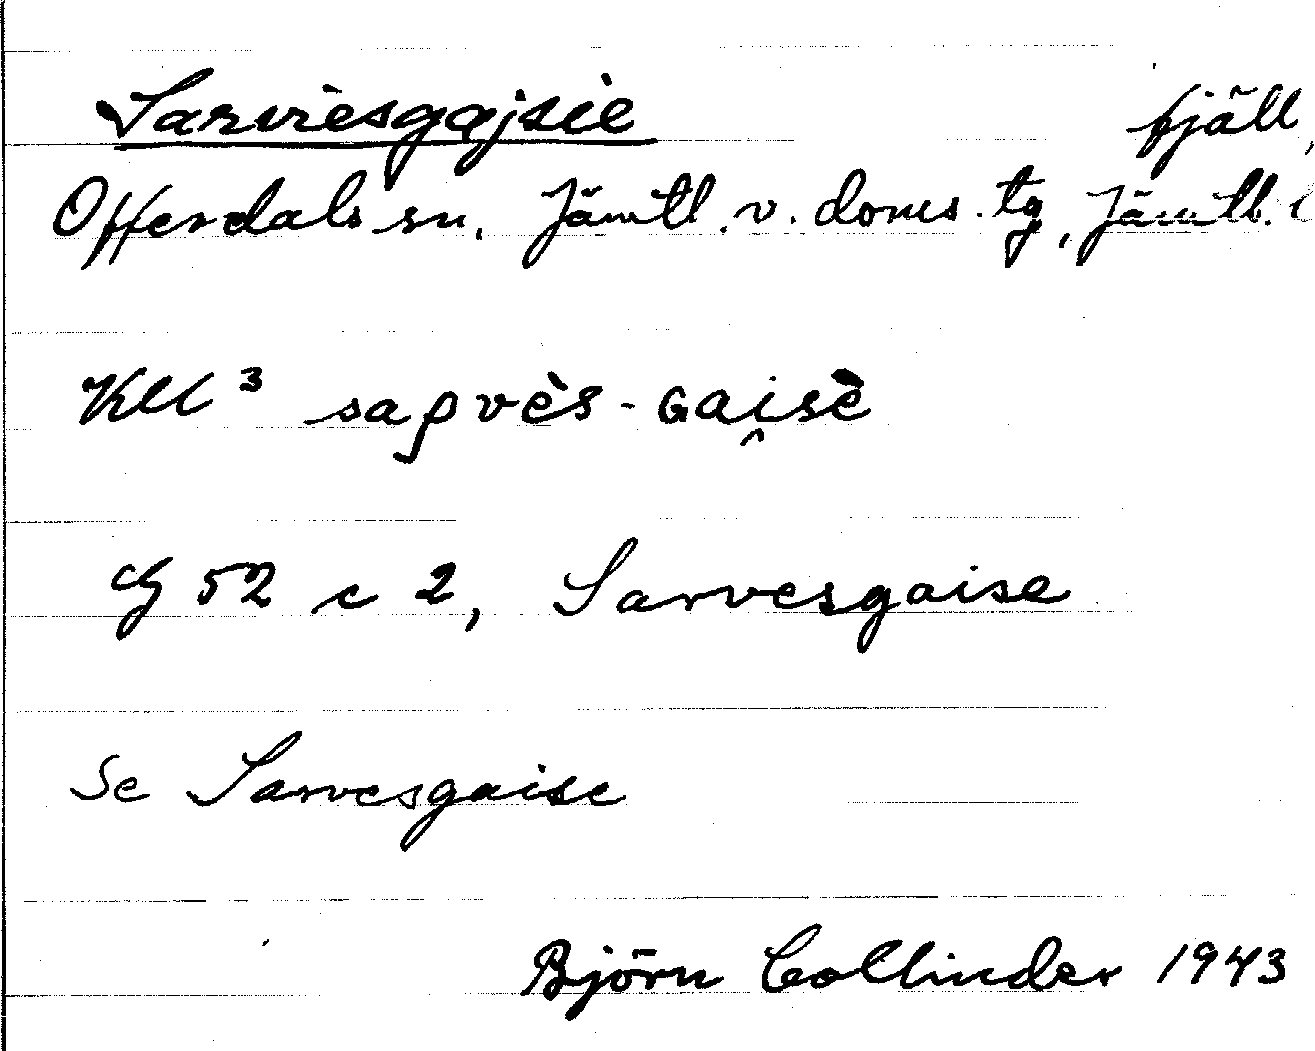 Sarviesgajsie fjäll,
Offerdals sn. Jämtl. v. doms. tg, Jämtl. l
KM³ saρvès-Gai̭sè
G 52 c 2, Sarvesgaise
Se Sarvesgaise
Björn Collinder 1943